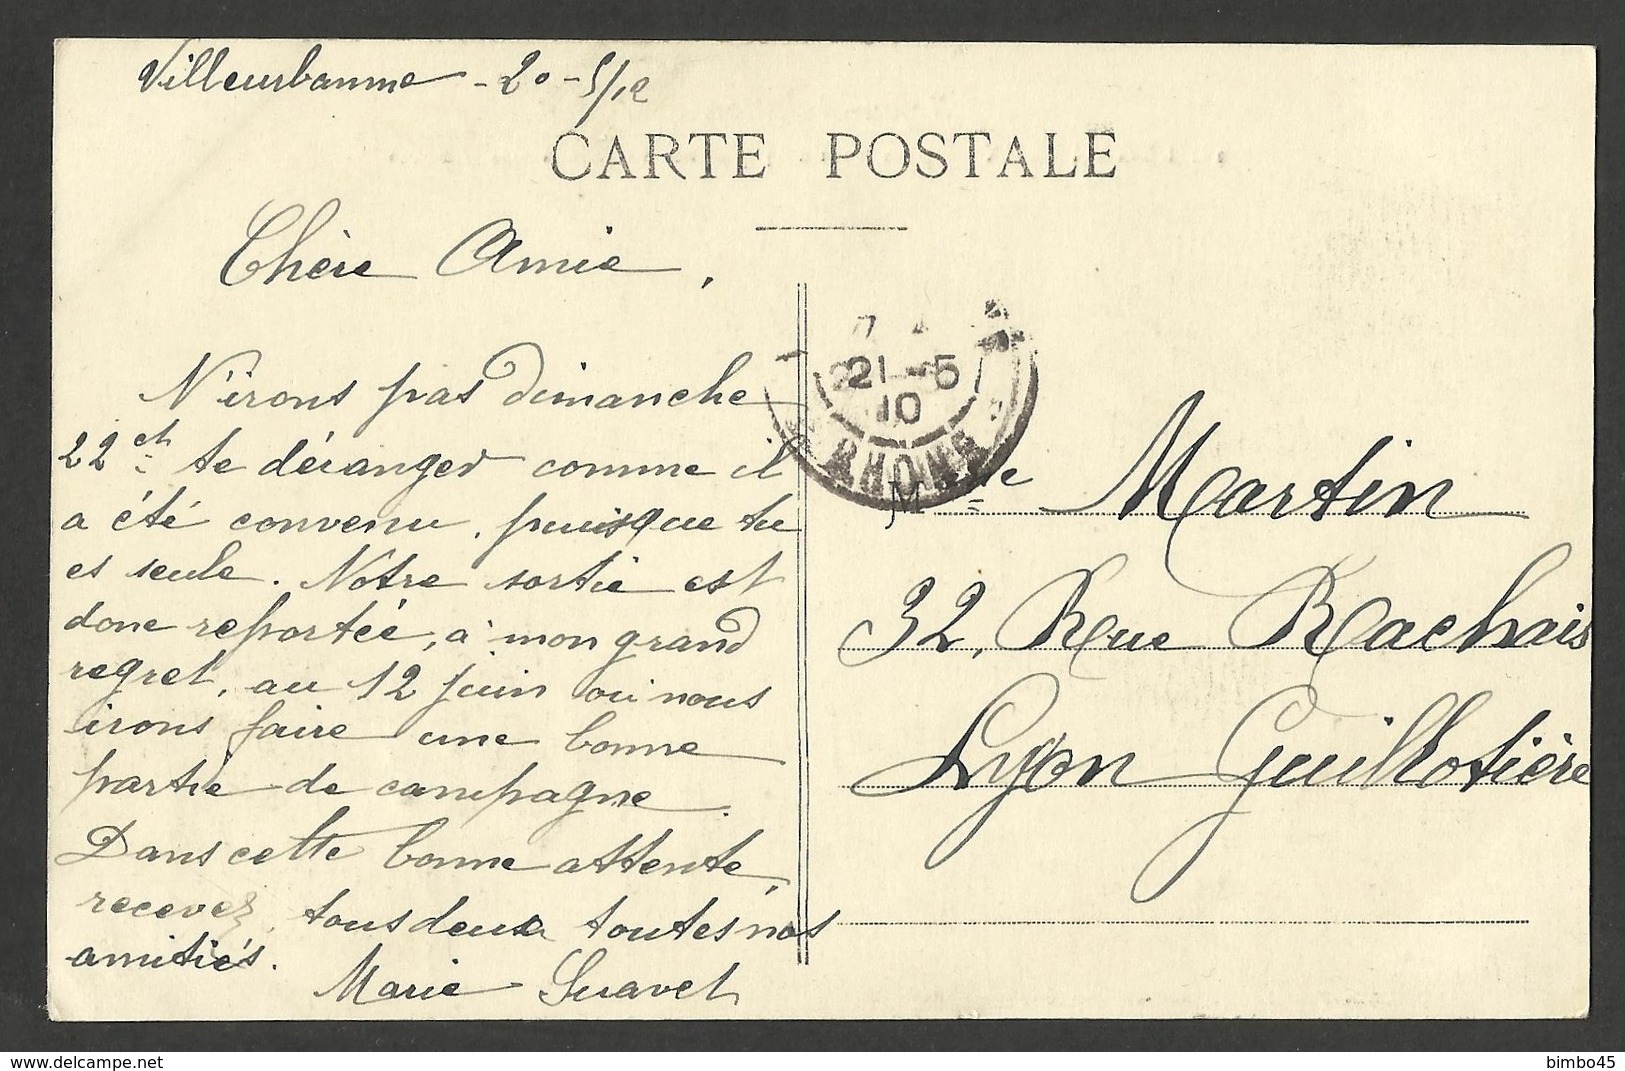 Villeurbanne - 20 - 5/10
CARTE POSTALE
Chère Amie,
N'irons pas dimanche
22 ct te déranger comme il
a été convenu, puisque tu
es seule. Notre sortie est
donc reportée, à mon grand
regret, au 12 juin où nous
irons faire une bonne
partie de campagne.
Dans cette bonne attente,
recevez, tous deux toutes nos
amitiés.
Marie Suavet
21-5
10
RHONE
Mme Martin
32, Rue Rachais
Lyon Guillotière
bimbo45